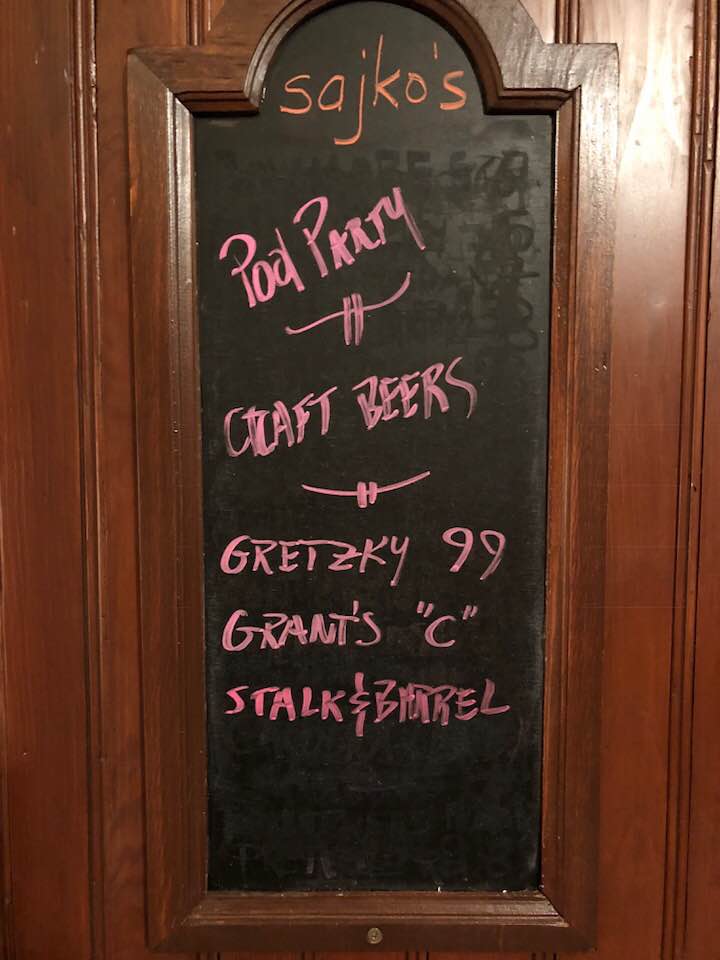 sajko's
Pool Party
CRAFT BEERS
GRETZKY 99
GRANT'S "C"
STALK & BARREL